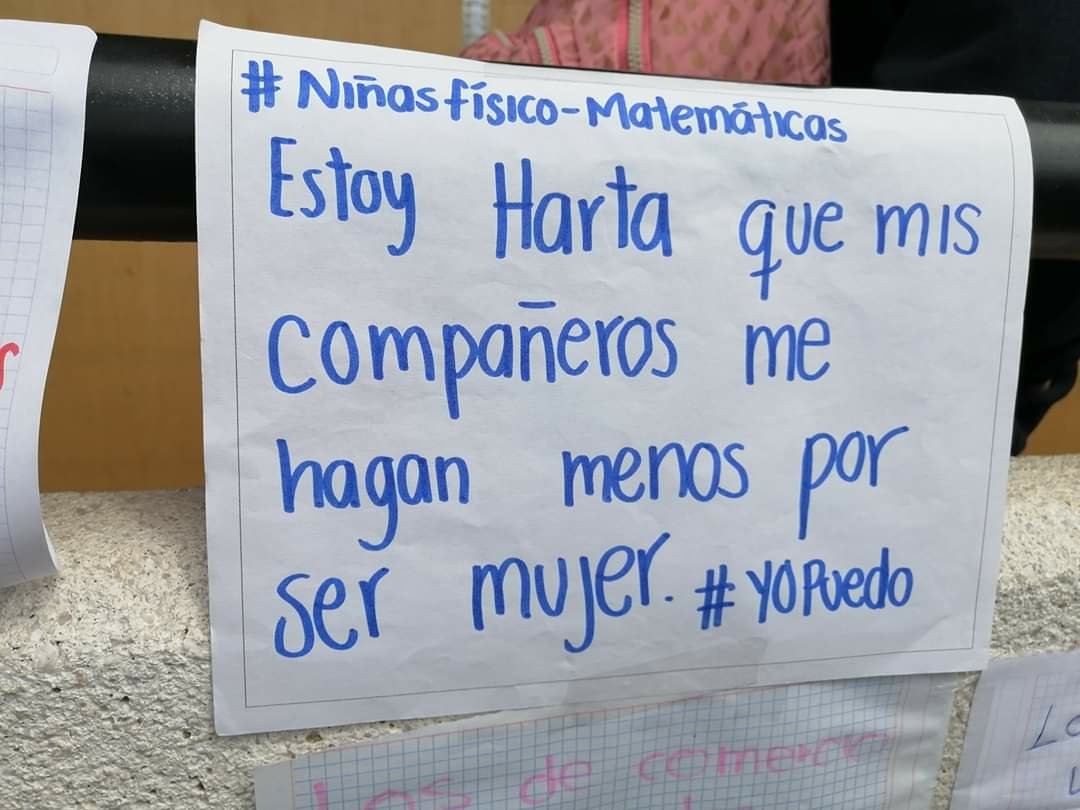 #Niñasfísico-Matemáticas
Estoy Harta que mis
compañeros me
hagan menos por
ser mujer. #YOPuedo
Los de comercio